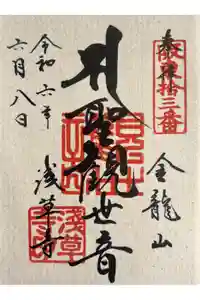 奉拝
坂東拾三番
金龍山
聖観世音
浅草寺
令和六年
六月八日
浅草寺